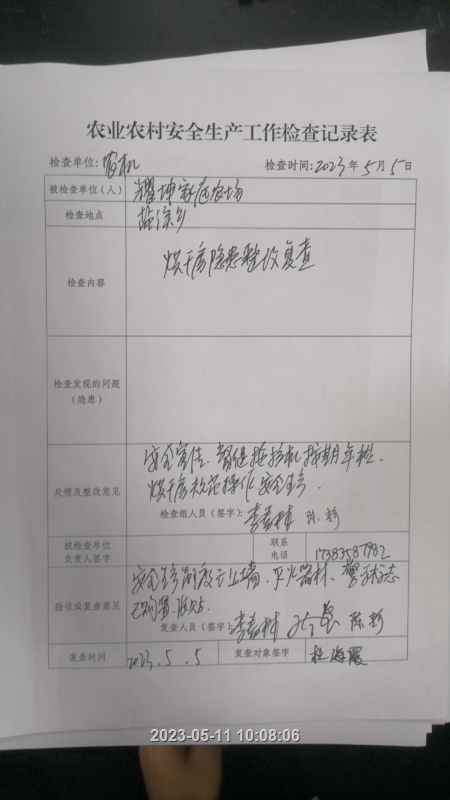 农业农村安全生产工作检查记录表
检查单位:农机 检查时间:2023年5月5日
被检查单位(人) 耀坤家庭农场
检查地点
检查内容 烘干房隐患整改复查
检查发现的问题
(隐患)
安全宣传、督促拖拉机按期年检、
处理及整改意见 烘干房规范操作安全生产.
检查组人员(签字): 李春林 陈彬
被检查单位
负责人签字
联系
电话
17383587982
安全生产制度已上墙,灭火器材、警示标志
验收或复查意见 已购置
复查人员(签字) 李春林 陈彬
复查时间 2023.5.5 复查对象签字 杜海霞
2023-05-11 10:08:06